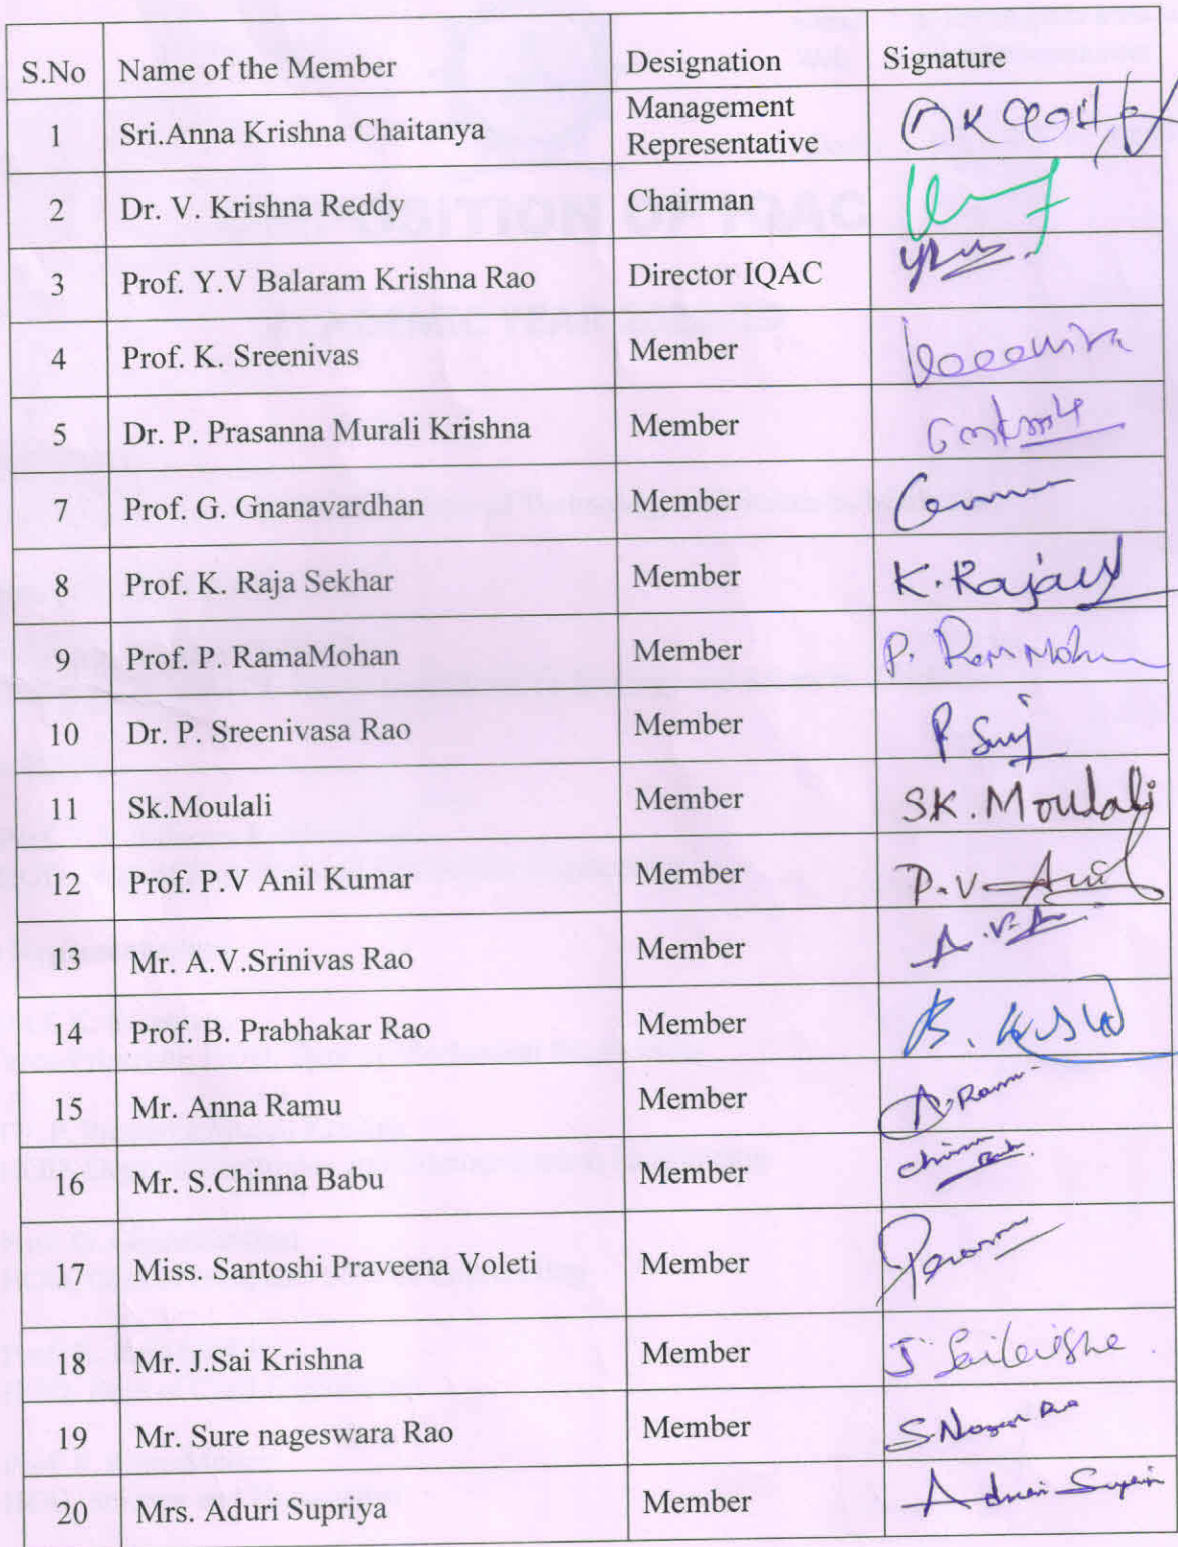 S.No Name of the Member Designation Signature
1 Sri.Anna Krishna Chaitanya Management Representative
2 Dr. V. Krishna Reddy Chairman
3 Prof. Y.V Balaram Krishna Rao Director IQAC
4 Prof. K. Sreenivas Member
5 Dr. P. Prasanna Murali Krishna Member
7 Prof. G. Gnanavardhan Member
8 Prof. K. Raja Sekhar Member
9 Prof. P. RamaMohan Member P. Ram Mohan
10 Dr. P. Sreenivasa Rao Member
11 Sk.Moulali Member SK. Moulali
12 Prof. P.V Anil Kumar Member P.V Anil
13 Mr. A.V.Srinivas Rao Member
14 Prof. B. Prabhakar Rao Member
15 Mr. Anna Ramu Member A. Ramu
16 Mr. S.Chinna Babu Member
17 Miss. Santoshi Praveena Voleti Member
18 Mr. J.Sai Krishna Member
19 Mr. Sure nageswara Rao Member
20 Mrs. Aduri Supriya Member